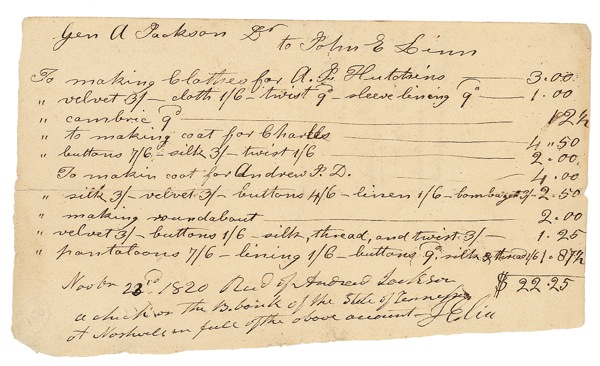 Gen A Jackson Dr
to John E Linn
To making Clothes for A. J. Hutchins — 3.00
" velvet 3/– cloth 1/6 – twist 9d – sleeve lining 9d — 1.00
" cambric 9d — 12½
" to making coat for Charles — 4.50
" buttons 7/6 – silk 3/– twist 1/6 — 2.00
To makin coat for Andrew J. D. — 4.00
" silk 3/– velvet 3/– buttons 4/6 – linen 1/6 – 3/– 2.50
" making roundabout — 2.00
" velvet 3/– buttons 1/6 – silk, thread, and twist 3/– 1.25
" pantaloons 7/6 – lining 1/6 – buttons 9d, silk & thread 1/6 1.87½
$ 22.25
Novbr 23rd 1820 Recd of Andrew Jackson
a check on the B. bank of the State of Tennessee
at Nashville in full of the above account –